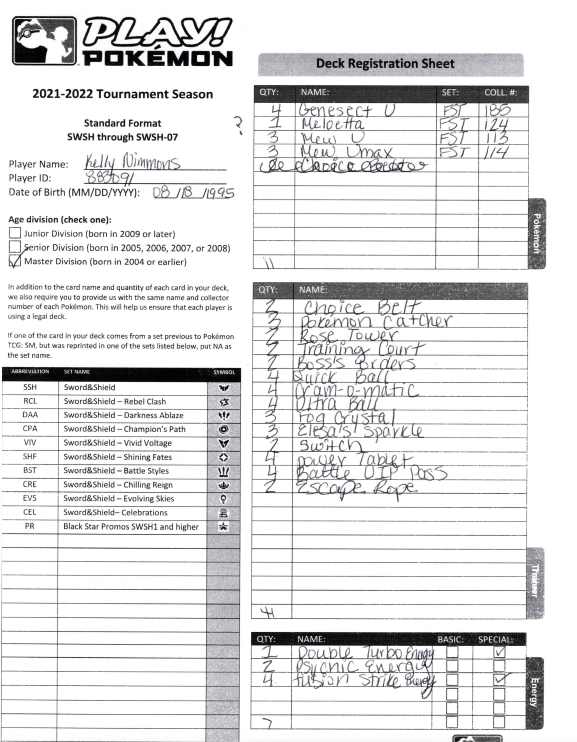 PLAY!
POKÉMON
2021-2022 Tournament Season
Standard Format
SWSH through SWSH-07
?
Player Name: Kelly Nimmons
Player ID: 883091
Date of Birth (MM/DD/YYYY): 08 /18 /1995
Age division (check one):
Junior Division (born in 2009 or later)
Senior Division (born in 2005, 2006, 2007, or 2008)
Master Division (born in 2004 or earlier)
In addition to the card name and quantity of each card in your deck,
we also require you to provide us with the same name and collector
number of each Pokémon. This will help us ensure that each player is
using a legal deck.
If one of the card in your deck comes from a set previous to Pokémon
TCG: SM, but was reprinted in one of the sets listed below, put NA as
the set name.
ABBREVIATION SET NAME SYMBOL
SSH Sword&Shield
RCL Sword&Shield – Rebel Clash
DAA Sword&Shield – Darkness Ablaze
CPA Sword&Shield – Champion's Path
VIV Sword&Shield – Vivid Voltage
SHF Sword&Shield – Shining Fates
BST Sword&Shield – Battle Styles
CRE Sword&Shield – Chilling Reign
EVS Sword&Shield – Evolving Skies
CEL Sword&Shield– Celebrations
PR Black Star Promos SWSH1 and higher
Deck Registration Sheet
QTY: NAME: SET: COLL. #:
4 Genesect V FST 185
1 Meloetta FST 124
3 Mew V FST 113
3 Mew Vmax FST 114
11
Pokémon
QTY: NAME:
2 Choice Belt
3 Pokémon Catcher
2 Rose Tower
2 Training Court
2 Boss's Orders
4 Quick Ball
4 Cram-o-matic
4 Ultra Ball
3 Fog Crystal
3 Elesa's Sparkle
2 Switch
4 Power Tablet
4 Battle VIP Pass
2 Escape Rope
41
Trainer
QTY: NAME: BASIC: SPECIAL:
1 Double Turbo Energy
2 Psychic Energy
4 Fusion Strike Energy
7
Energy